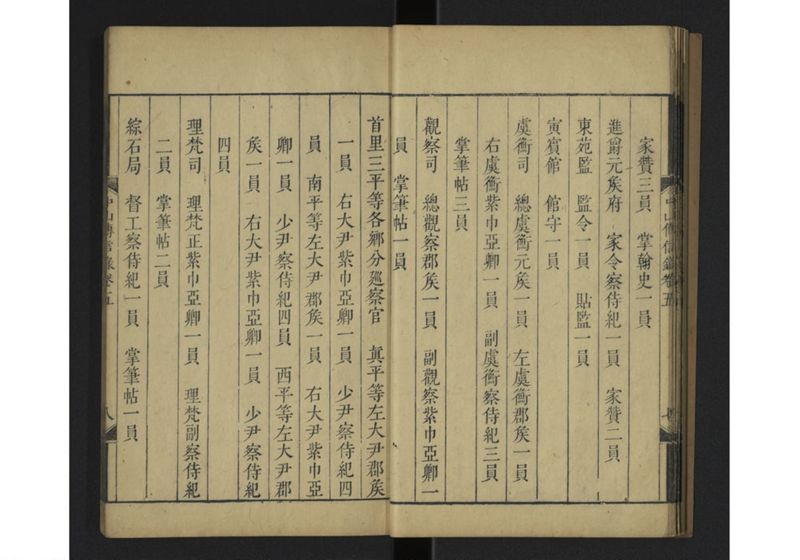 家贊三員　掌翰史一員
進爵元矦府　家令察侍紀一員　家贊二員
東苑監　監令一員　貼監一員
寅賓館　館守一員
虞衡司　總虞衡元矦一員　左虞衡郡矦一員
右虞衡紫巾亞卿一員　副虞衡察侍紀三員
掌筆帖三員
觀察司　總觀察郡矦一員　副觀察紫巾亞卿一
員　掌筆帖一員
首里三平等各鄉分廵察官　真平等左大尹郡矦
一員　右大尹紫巾亞卿一員　少尹察侍紀四
員　南平等左大尹郡矦一員　右大尹紫巾亞
卿一員　少尹察侍紀四員　西平等左大尹郡
矦一員　右大尹紫巾亞卿一員　少尹察侍紀
四員
理梵司　理梵正紫巾亞卿一員　理梵副察侍紀
二員　掌筆帖二員
綜石局　督工察侍紀一員　掌筆帖一員
中山傳信錄卷五
八